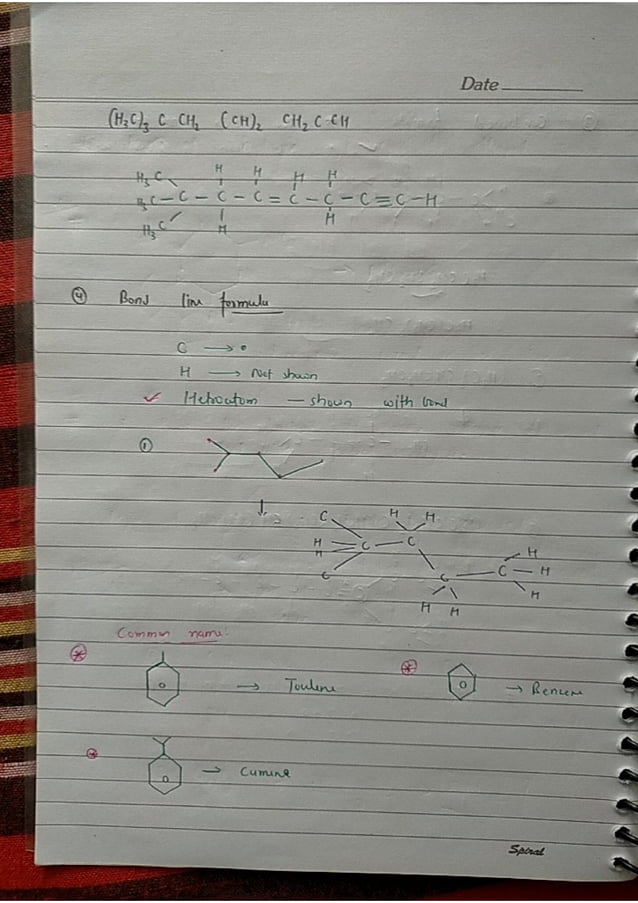 Date
(H3C)3 C CH2 (CH)2 CH2 C CH
H H H H
H3C
H3C - C - C - C = C - C - C ≡ C - H
H3C H H
④ Bond line formula
C → •
H → Not shown
✓ Hetroatom — shown with bond
①
↓
C H H
H C — C H
H
C C — C — H
H
H H
Common name:
→ Toulene → Benzene
→ Cumene
Spiral